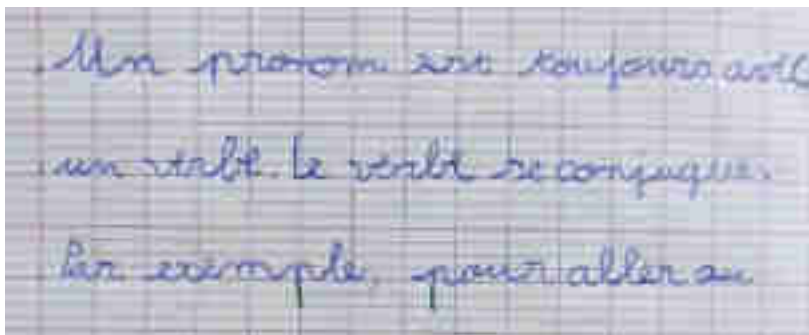 Un pronom est toujours avec
un verbe. Le verbe se conjugue.
Par exemple, pour aller au